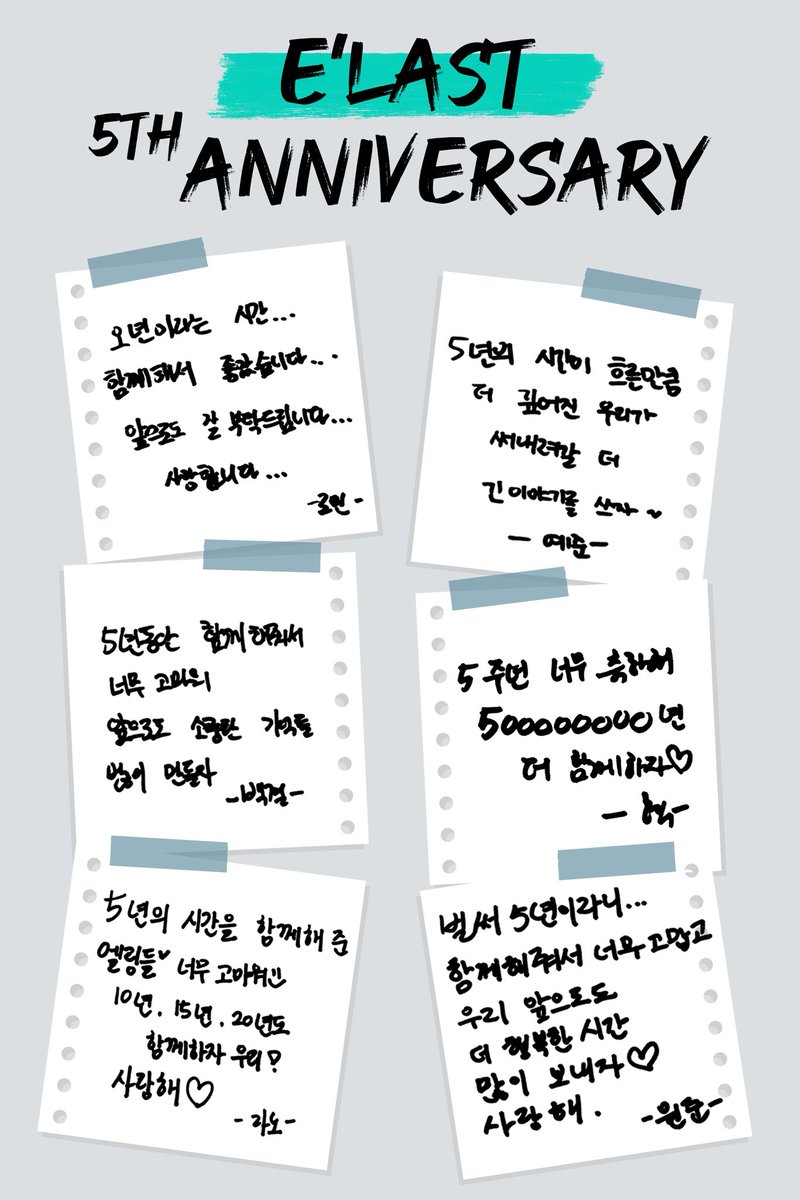 E'LAST
5TH ANNIVERSARY
오년이라는 시간...
함께해서 좋았습니다...
앞으로도 잘 부탁드립니다...
사랑합니다...
-로민-
5년의 시간이 흐른만큼
더 깊어진 우리가
써내려갈 더
긴 이야기를 쓰자♥
- 예준 -
5년동안 함께 해줘서
너무 고마워
앞으로도 소중한 기억들
많이 만들자
-백결-
5주년 너무 축하해
500000000년
더 함께하자♡
- 혁 -
5년의 시간을 함께해 준
엘링들♥ 너무 고마워!!
10년, 15년, 20년도
함께하자 우리?
사랑해♡
-라노-
벌써 5년이라니...
함께해줘서 너무 고맙고
우리 앞으로도
더 행복한 시간
많이 보내자♡
사랑해.
-원준-